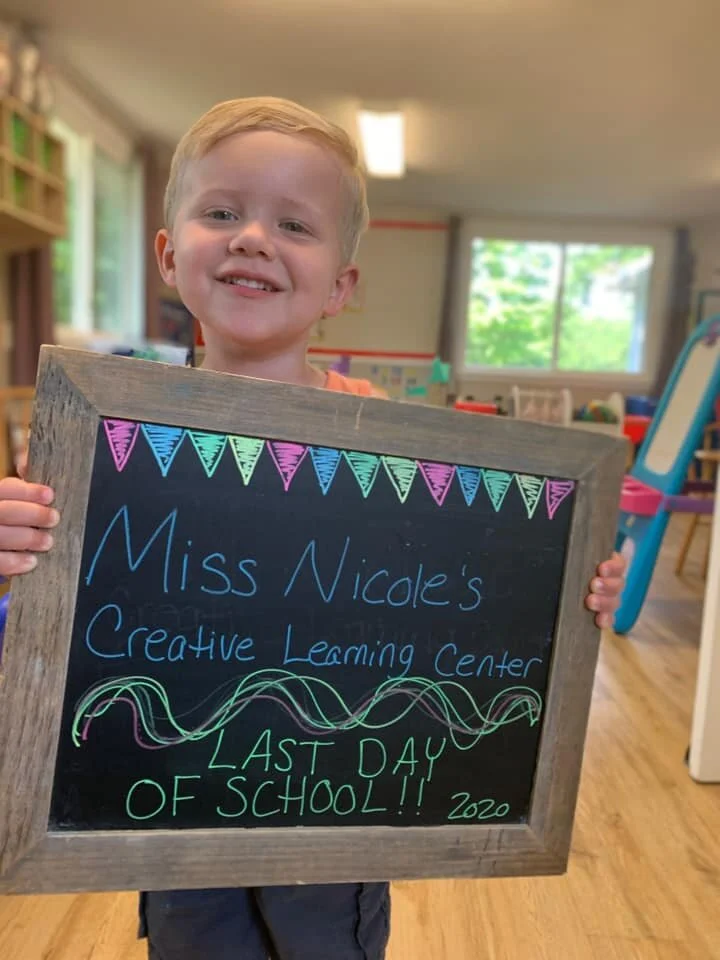 Miss Nicole's
Creative Learning Center
LAST DAY
OF SCHOOL!! 2020